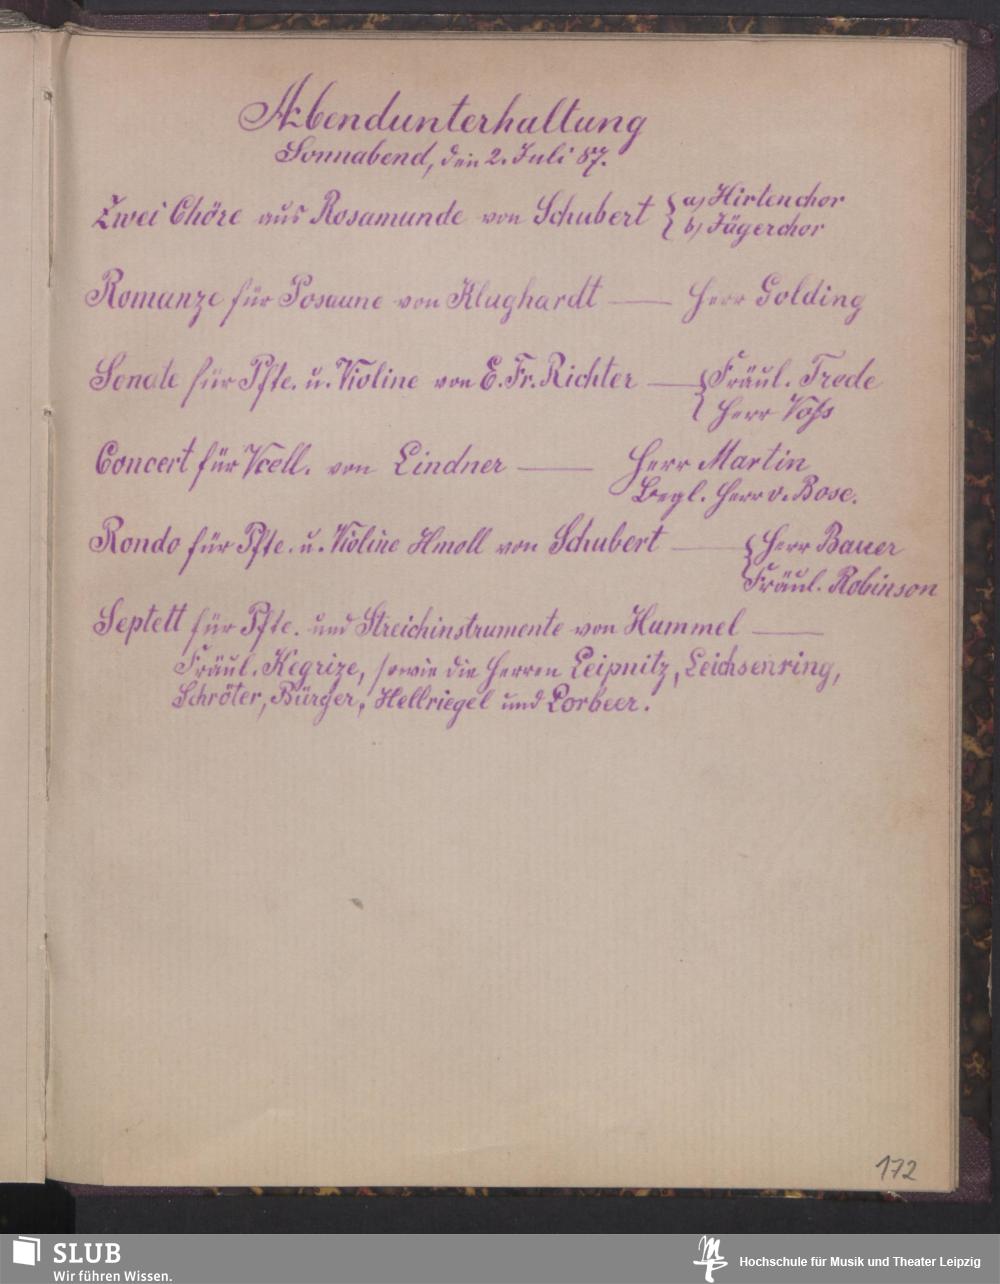 Abendunterhaltung
Sonnabend, den 2. Juli 87.
Zwei Chöre aus Rosamunde von Schubert { a) Hirtenchor
b) Jägerchor
Romanze für Posaune von Klughardt — Herr Golding
Sonate für Pfte. u. Violine von E. Fr. Richter — { Fräul. Trede
Herr Voß
Concert für Vcell. von Lindner — Herr Martin
Begl. Herr v. Bose.
Rondo für Pfte. u. Violine Hmoll von Schubert — { Herr Bauer
Fräul. Robinson
Septett für Pfte. und Streichinstrumente von Hummel —
Fräul. Kegrize, sowie die Herren Leipnitz, Leichsenring,
Schröter, Bürger, Hellriegel und Lorbeer.
172
SLUB
Wir führen Wissen.
Hochschule für Musik und Theater Leipzig